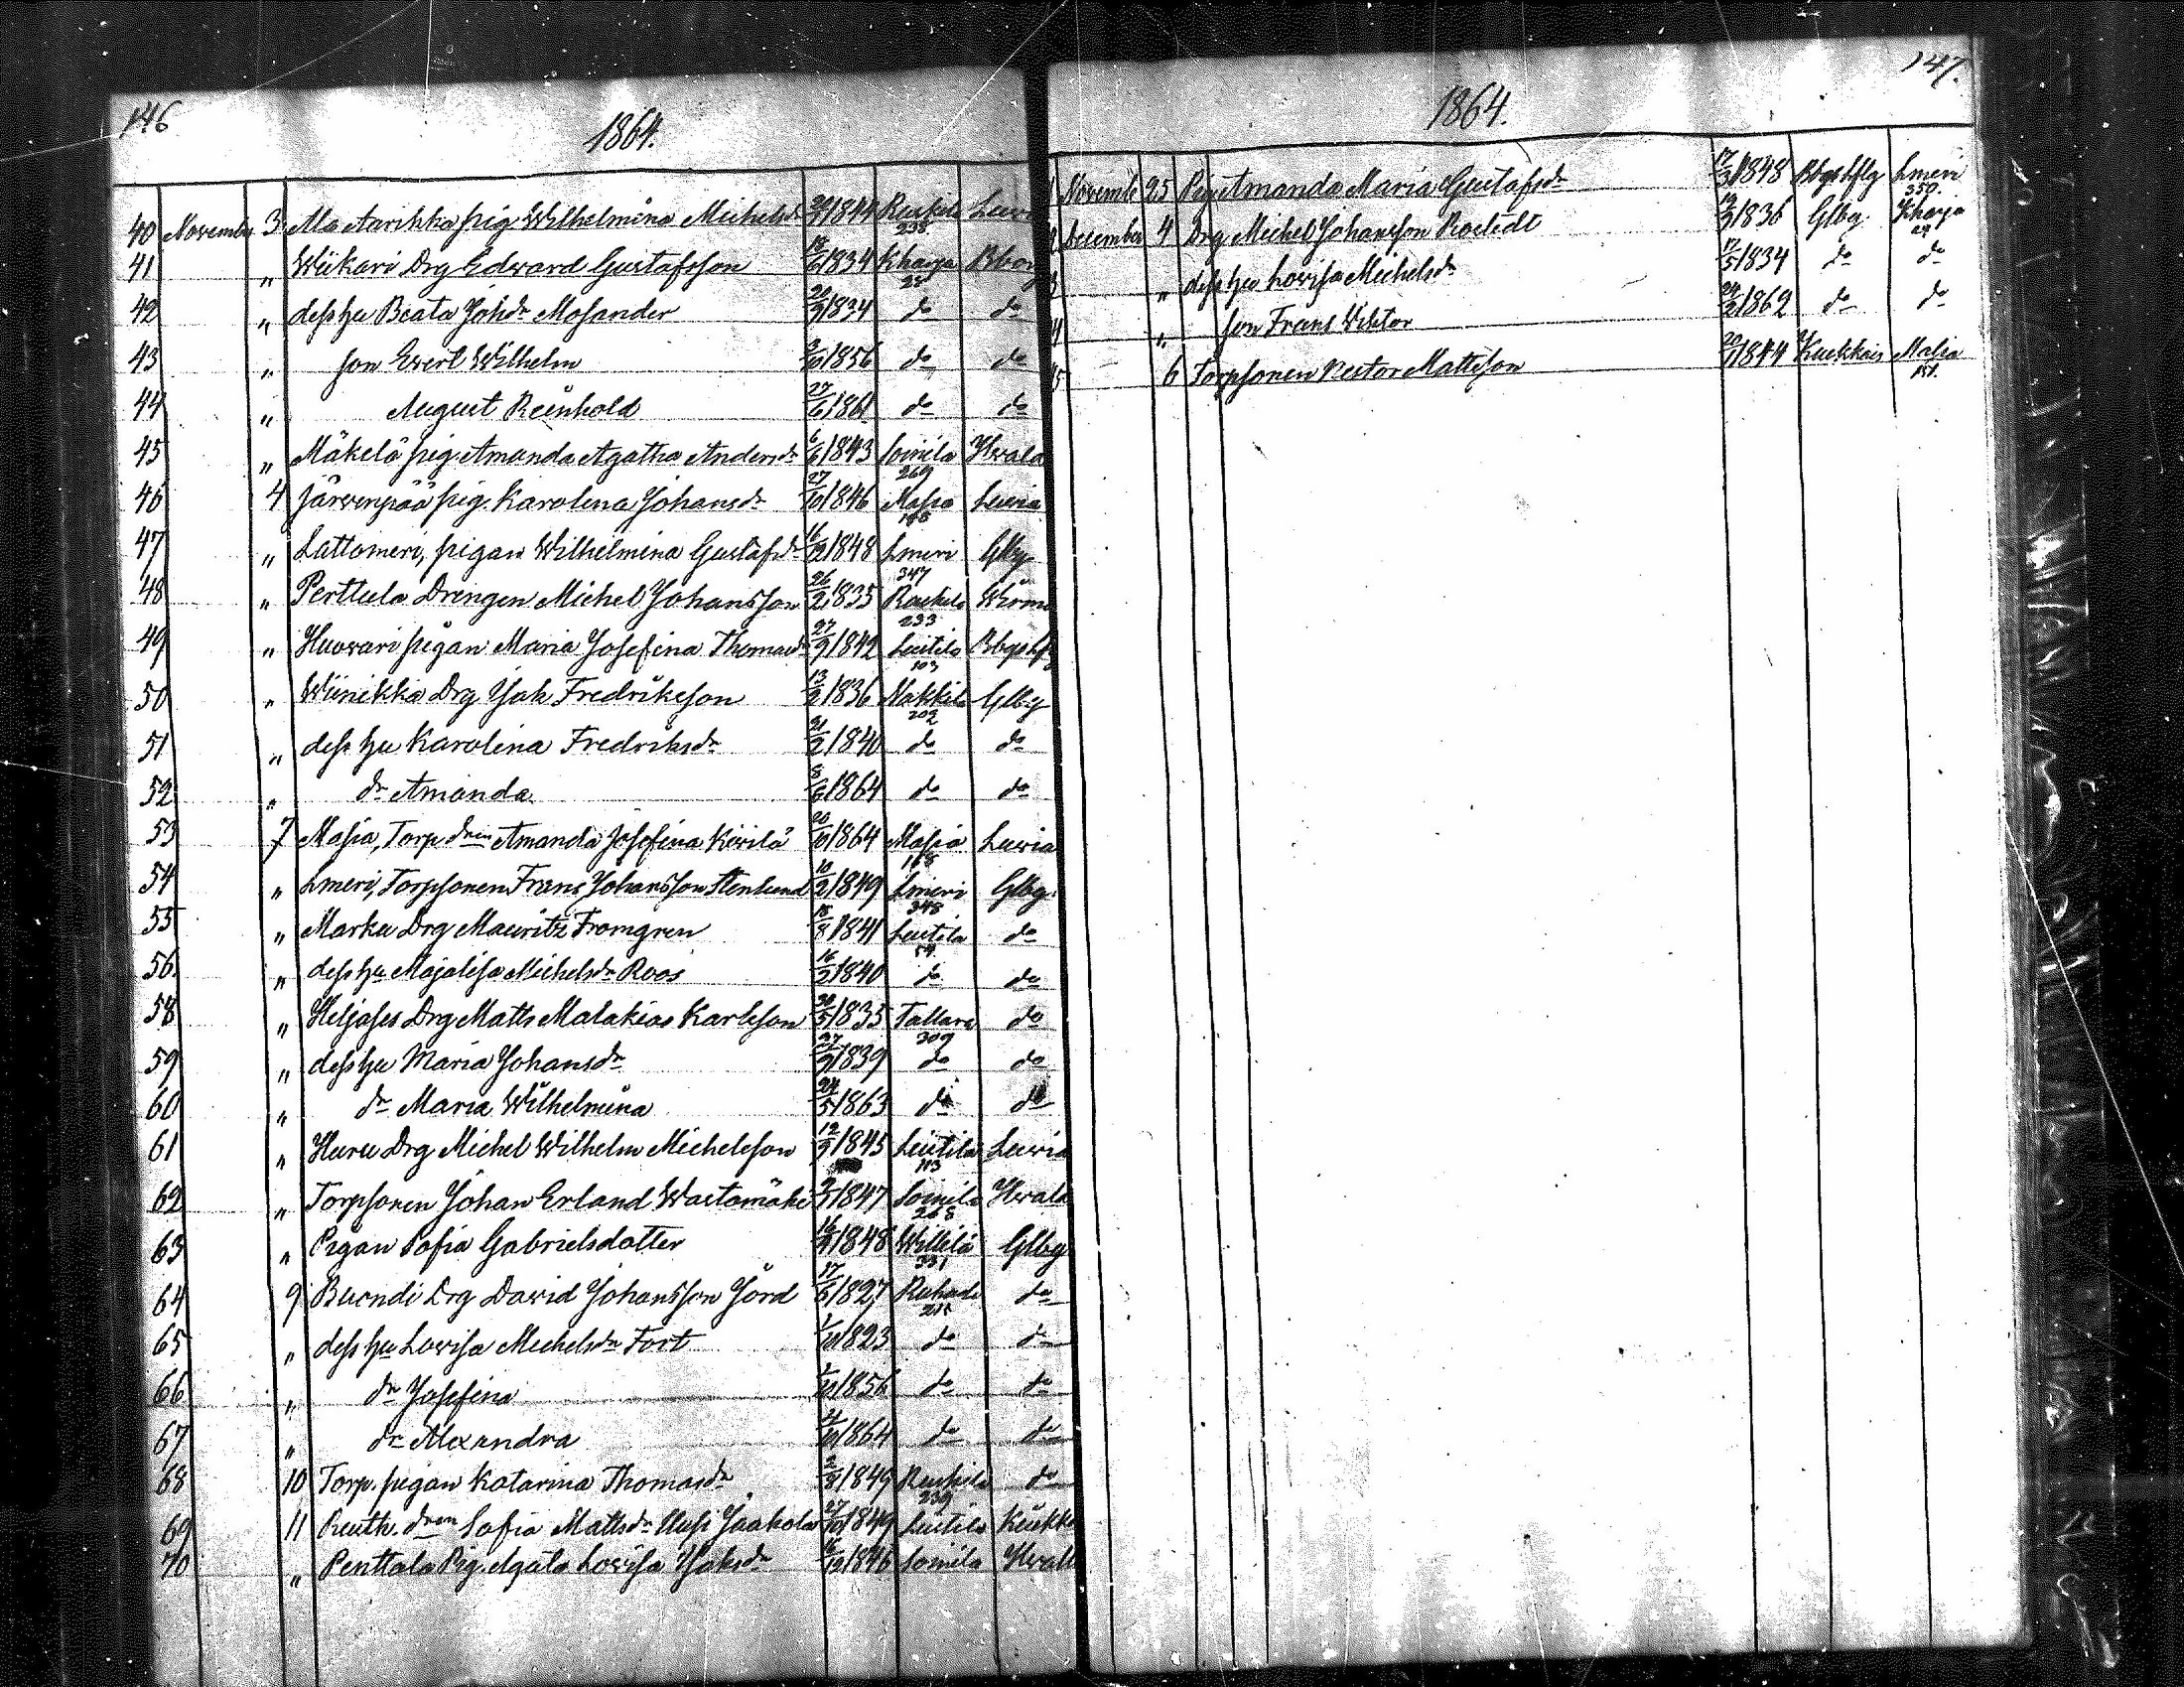 146
1864.
40 November 3 Ma Aarikka pig Wilhelmina Michelsdr 29/9 1844 Ruskila 238
41 " Wiikari Drg Edward Gustafsson 13/6 1834 Kharja 28
42 " dess hu Beata Johdr Mosander 20/9 1834 do do
43 " son Evert Wilhelm 3/10 1856 do do
44 " August Reinhold 27/6 1861 do do
45 " Mäkelä pig. Amanda Agatha Andersdr 6/6 1843 Soinila 269 Hvala
46 4 Järvenpää pig. Karolina Johansdr 27/10 1846 Masia Luvia
47 " Lattomeri, pigan Wilhelmina Gustafsdr 16/12 1848 Lmeri 347 Glbg
48 " Perttula Drengen Michel Johansson 26/2 1835 233
49 " Huovari pigan Maria Josefina Thomasdr 27/9 1842 Leistila 103
50 " Wiinikka Drg Joh Fredriksson 13/2 1836 Nakkila 202 Glbg
51 " dess hu Karolina Fredriksdr 21/2 1840 do do
52 " dr Amanda 8/6 1864 do do
53 7 Masia, Torp. drn Amanda Josefina Kivilä 20/10 1864 Masia 168 Luvia
54 " Lmeri, Torpsonen Frans Johansson Stenlund 10/2 1849 Lmeri 348 Glbg.
55 " Marku Drg Mauritz Fromgren 18/8 1841 Leistila 54 do
56. " dess hu Majalisa Michelsdr Roos 16/2 1840 do do
58 " Heljases Drg Matts Malakias Karlsson 30/5 1835 Tattara 309 do
59 " dess hu Maria Johansdr 27/9 1839 do do
60 " dr Maria Wilhelmina 24/5 1863 do do
61 " Haru Drg Michel Wilhelm Michelsson 12/9 1845 Leistila 113 Luvia
62 " Torpsonen Johan Erland Wartamäki 9/3 1847 Soinila 268 Hvala
63 " Pigan Sofia Gabrielsdotter 16/4 1848 Willilä 331 Glbg
64 9 Buondi Drg David Johansson Jord 17/6 1827 do
65 " dess hu Lovisa Michelsdr Fort 1/10 1823 do do
66 " dr Josefina 1/10 1856 do do
67 " dr Alexandra 1864 do do
68 10 Torp. pigan Katarina Thomasdr 2/8 1849 Ruskila 239 do
69 11 drn Sofia Mattsdr Uusi Jaakola 27/10 1849 Leistila
70 " Penttala Pig. Agata Lovisa Isaksdr 16/12 1846 Soinila
147.
1864.
November 25 Pig Amanda Maria Gustafsdr 17/3 1848 Bbgshflg Lmeri 350.
December 4 Drg Michel Johansson Rostedt 13/9 1836 Glbg. Kharja 29
" dess hu Lovisa Michelsdr 17/5 1834 do do
" son Frans Viktor 24/2 1862 do do
6 Torpsonen Nestor Mattsson 20/1 1844 Masia 151.